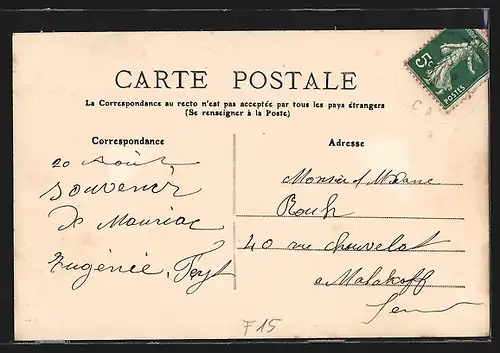 CARTE POSTALE
La Correspondance au recto n'est pas acceptée par tous les pays étrangers
(Se renseigner à la Poste)
Correspondance
20 Août
Souvenir
de Mauriac
Eugénie,
Adresse
Monsieur & Madame
40 rue Chauvelot
Malakoff
Seine
5c
POSTES
F15